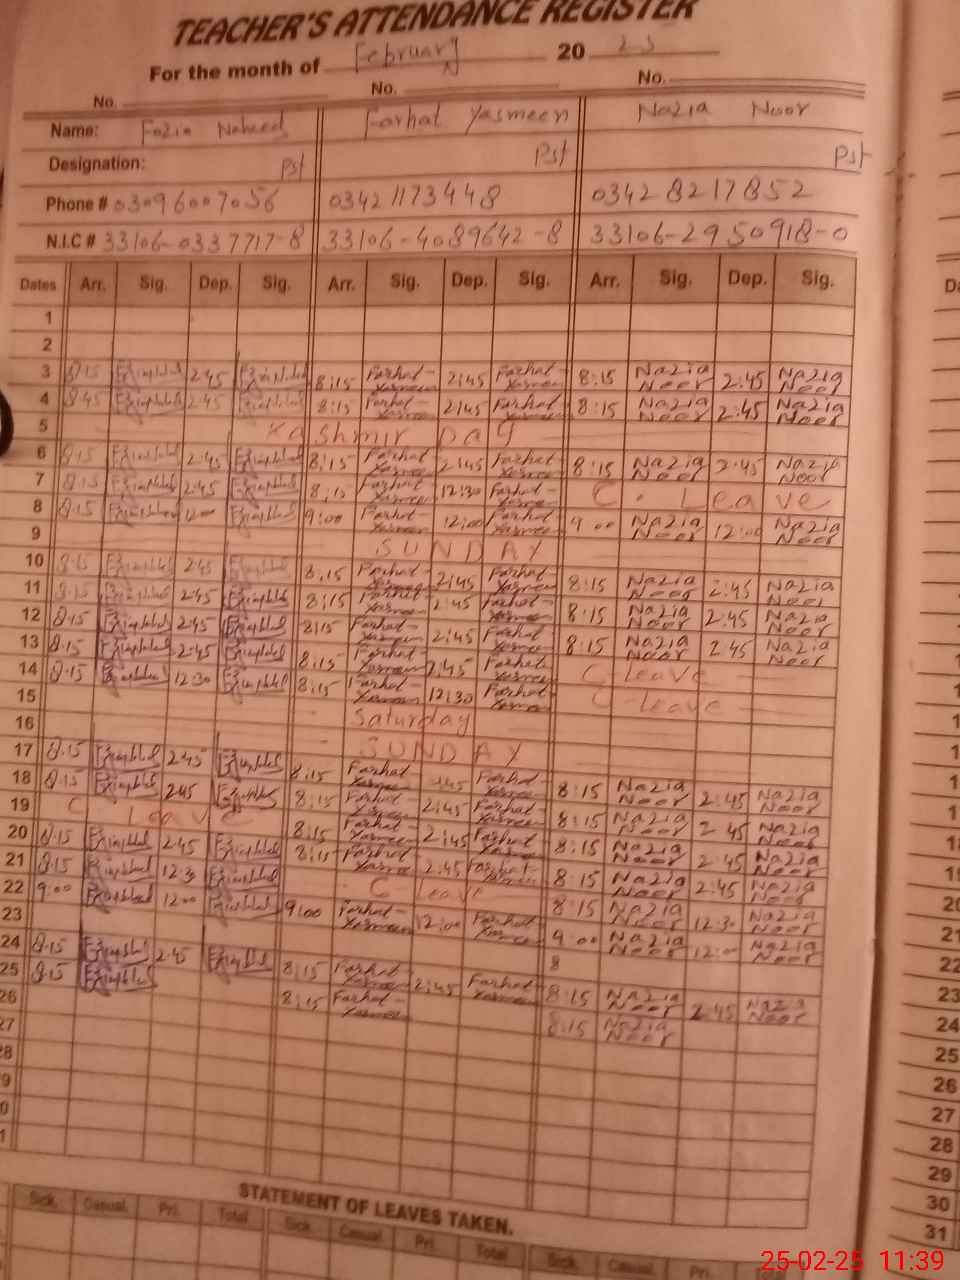 TEACHER'S ATTENDANCE REGISTER
For the month of February 20 25
No. No. No.
Name: Fozia Naheed Farhat Yasmeen Nazia Noor
Designation: Pst Pst Pst
Phone # 03096007056 03421173448 03428217852
N.I.C # 33106-0337717-8 33106-4089642-8 33106-2950918-0
Dates Arr. Sig. Dep. Sig. Arr. Sig. Dep. Sig. Arr. Sig. Dep. Sig.
1
2
3 8:15 2:45 8:15 Farhat Yasmeen 2:45 Farhat Yasmeen 8:15 Nazia Noor 2:45 Nazia Noor
4 8:45 2:45 8:15 Farhat Yasmeen 2:45 Farhat Yasmeen 8:15 Nazia Noor 2:45 Nazia Noor
5 Kashmir DAY
6 8:15 2:45 8:15 Farhat Yasmeen 2:45 Farhat Yasmeen 8:15 Nazia Noor 2:45 Nazia Noor
7 8:15 2:45 8:15 Farhat Yasmeen 12:30 Farhat Yasmeen C. Leave
8 8:15 12:00 9:00 Farhat Yasmeen 12:00 Farhat Yasmeen 9:00 Nazia Noor 12:00 Nazia Noor
9 SUNDAY
10 8:15 2:45 8:15 Farhat Yasmeen 2:45 Farhat Yasmeen 8:15 Nazia Noor 2:45 Nazia Noor
11 8:15 2:45 8:15 Farhat Yasmeen 2:45 Farhat Yasmeen 8:15 Nazia Noor 2:45 Nazia Noor
12 8:15 2:45 8:15 Farhat Yasmeen 2:45 Farhat Yasmeen 8:15 Nazia Noor 2:45 Nazia Noor
13 8:15 2:45 8:15 Farhat Yasmeen 2:45 Farhat Yasmeen C Leave
14 8:15 12:30 8:15 Farhat Yasmeen 12:30 Farhat Yasmeen C Leave
15 Saturday
16 SUNDAY
17 8:15 2:45 8:15 Farhat Yasmeen 2:45 Farhat Yasmeen 8:15 Nazia Noor 2:45 Nazia Noor
18 8:15 2:45 8:15 Farhat Yasmeen 2:45 Farhat Yasmeen 8:15 Nazia Noor 2:45 Nazia Noor
19 C Leave 8:15 Farhat Yasmeen 2:45 Farhat Yasmeen 8:15 Nazia Noor 2:45 Nazia Noor
20 8:15 2:45 8:15 Farhat Yasmeen 2:45 Farhat Yasmeen 8:15 Nazia Noor 2:45 Nazia Noor
21 8:15 12:30 C Leave 8:15 Nazia Noor 12:30 Nazia Noor
22 9:00 12:00 9:00 Farhat Yasmeen 12:00 Farhat Yasmeen 9:00 Nazia Noor 12:00 Nazia Noor
23 8
24 8:15 2:45 8:15 Farhat Yasmeen 2:45 Farhat Yasmeen 8:15 Nazia Noor 2:45 Nazia Noor
25 8:15 8:15 Farhat Yasmeen 8:15 Nazia Noor
26
27
28
9
0
1
STATEMENT OF LEAVES TAKEN.
Sick. Casual. Pri. Total Sick. Casual. Pri. Total Sick. Casual. Pri.
22
23
24
25
26
27
28
29
30
31
25-02-25 11:39